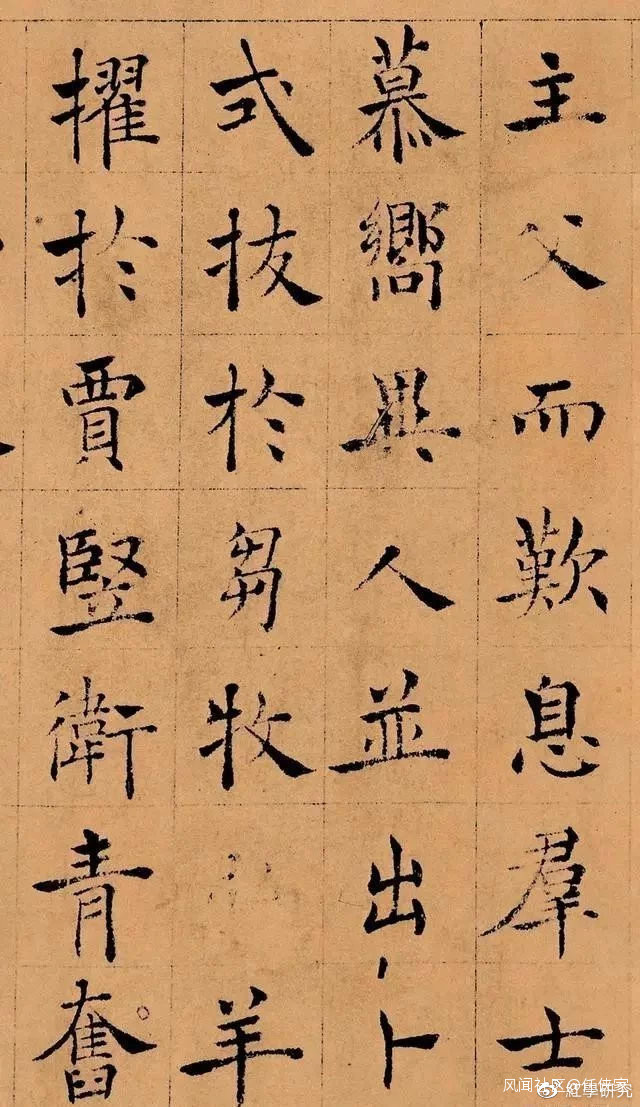 主父而歎息羣士
慕嚮異人並出卜
式拔於芻牧羊
擢於賈豎衛青奮
风闻社区
紅學研究